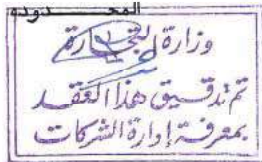 المحدوده
وزارة التجارة
تم تدقيق هذا العقد
بمعرفة إدارة الشركات